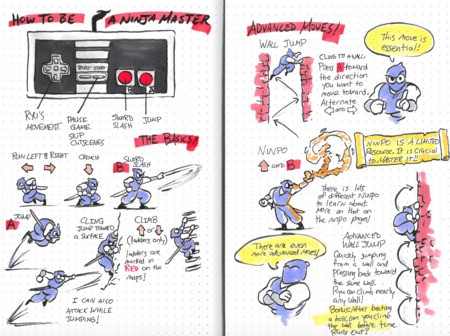 HOW TO BE A NINJA MASTER
SELECT START
RYU'S
MOVEMENT
PAUSE
GAME
SKIP
CUTSCENES
SWORD
SLASH
JUMP
THE BASICS!
RUN LEFT & RIGHT
CROUCH
SWORD
SLASH
B
A
JUMP
CLING
JUMP TOWARD
A SURFACE
CLIMB
or
(ladders only)
ladders are
marked in
RED on the
maps!
I CAN ALSO
ATTACK WHILE
JUMPING!
ADVANCED MOVES!
WALL JUMP
CLING TO A WALL
Press A toward
the direction
you want to
move toward.
Alternate
and
This move is
essential!
NINPO
AND B
NINPO IS A LIMITED
RESOURCE. IT IS CRUCIAL
TO MASTER IT!!
There is lots
of different Ninpo
to learn about
more on that on
the ninpo pages!
There are even
more advanced moves!
ADVANCED
WALL JUMP
Quickly jumping
from a wall and
Pressing back toward
the same wall.
Ryu can climb nearly
any wall!
Bonus: After beating
a boss, can you climb
the wall before time
runs out?